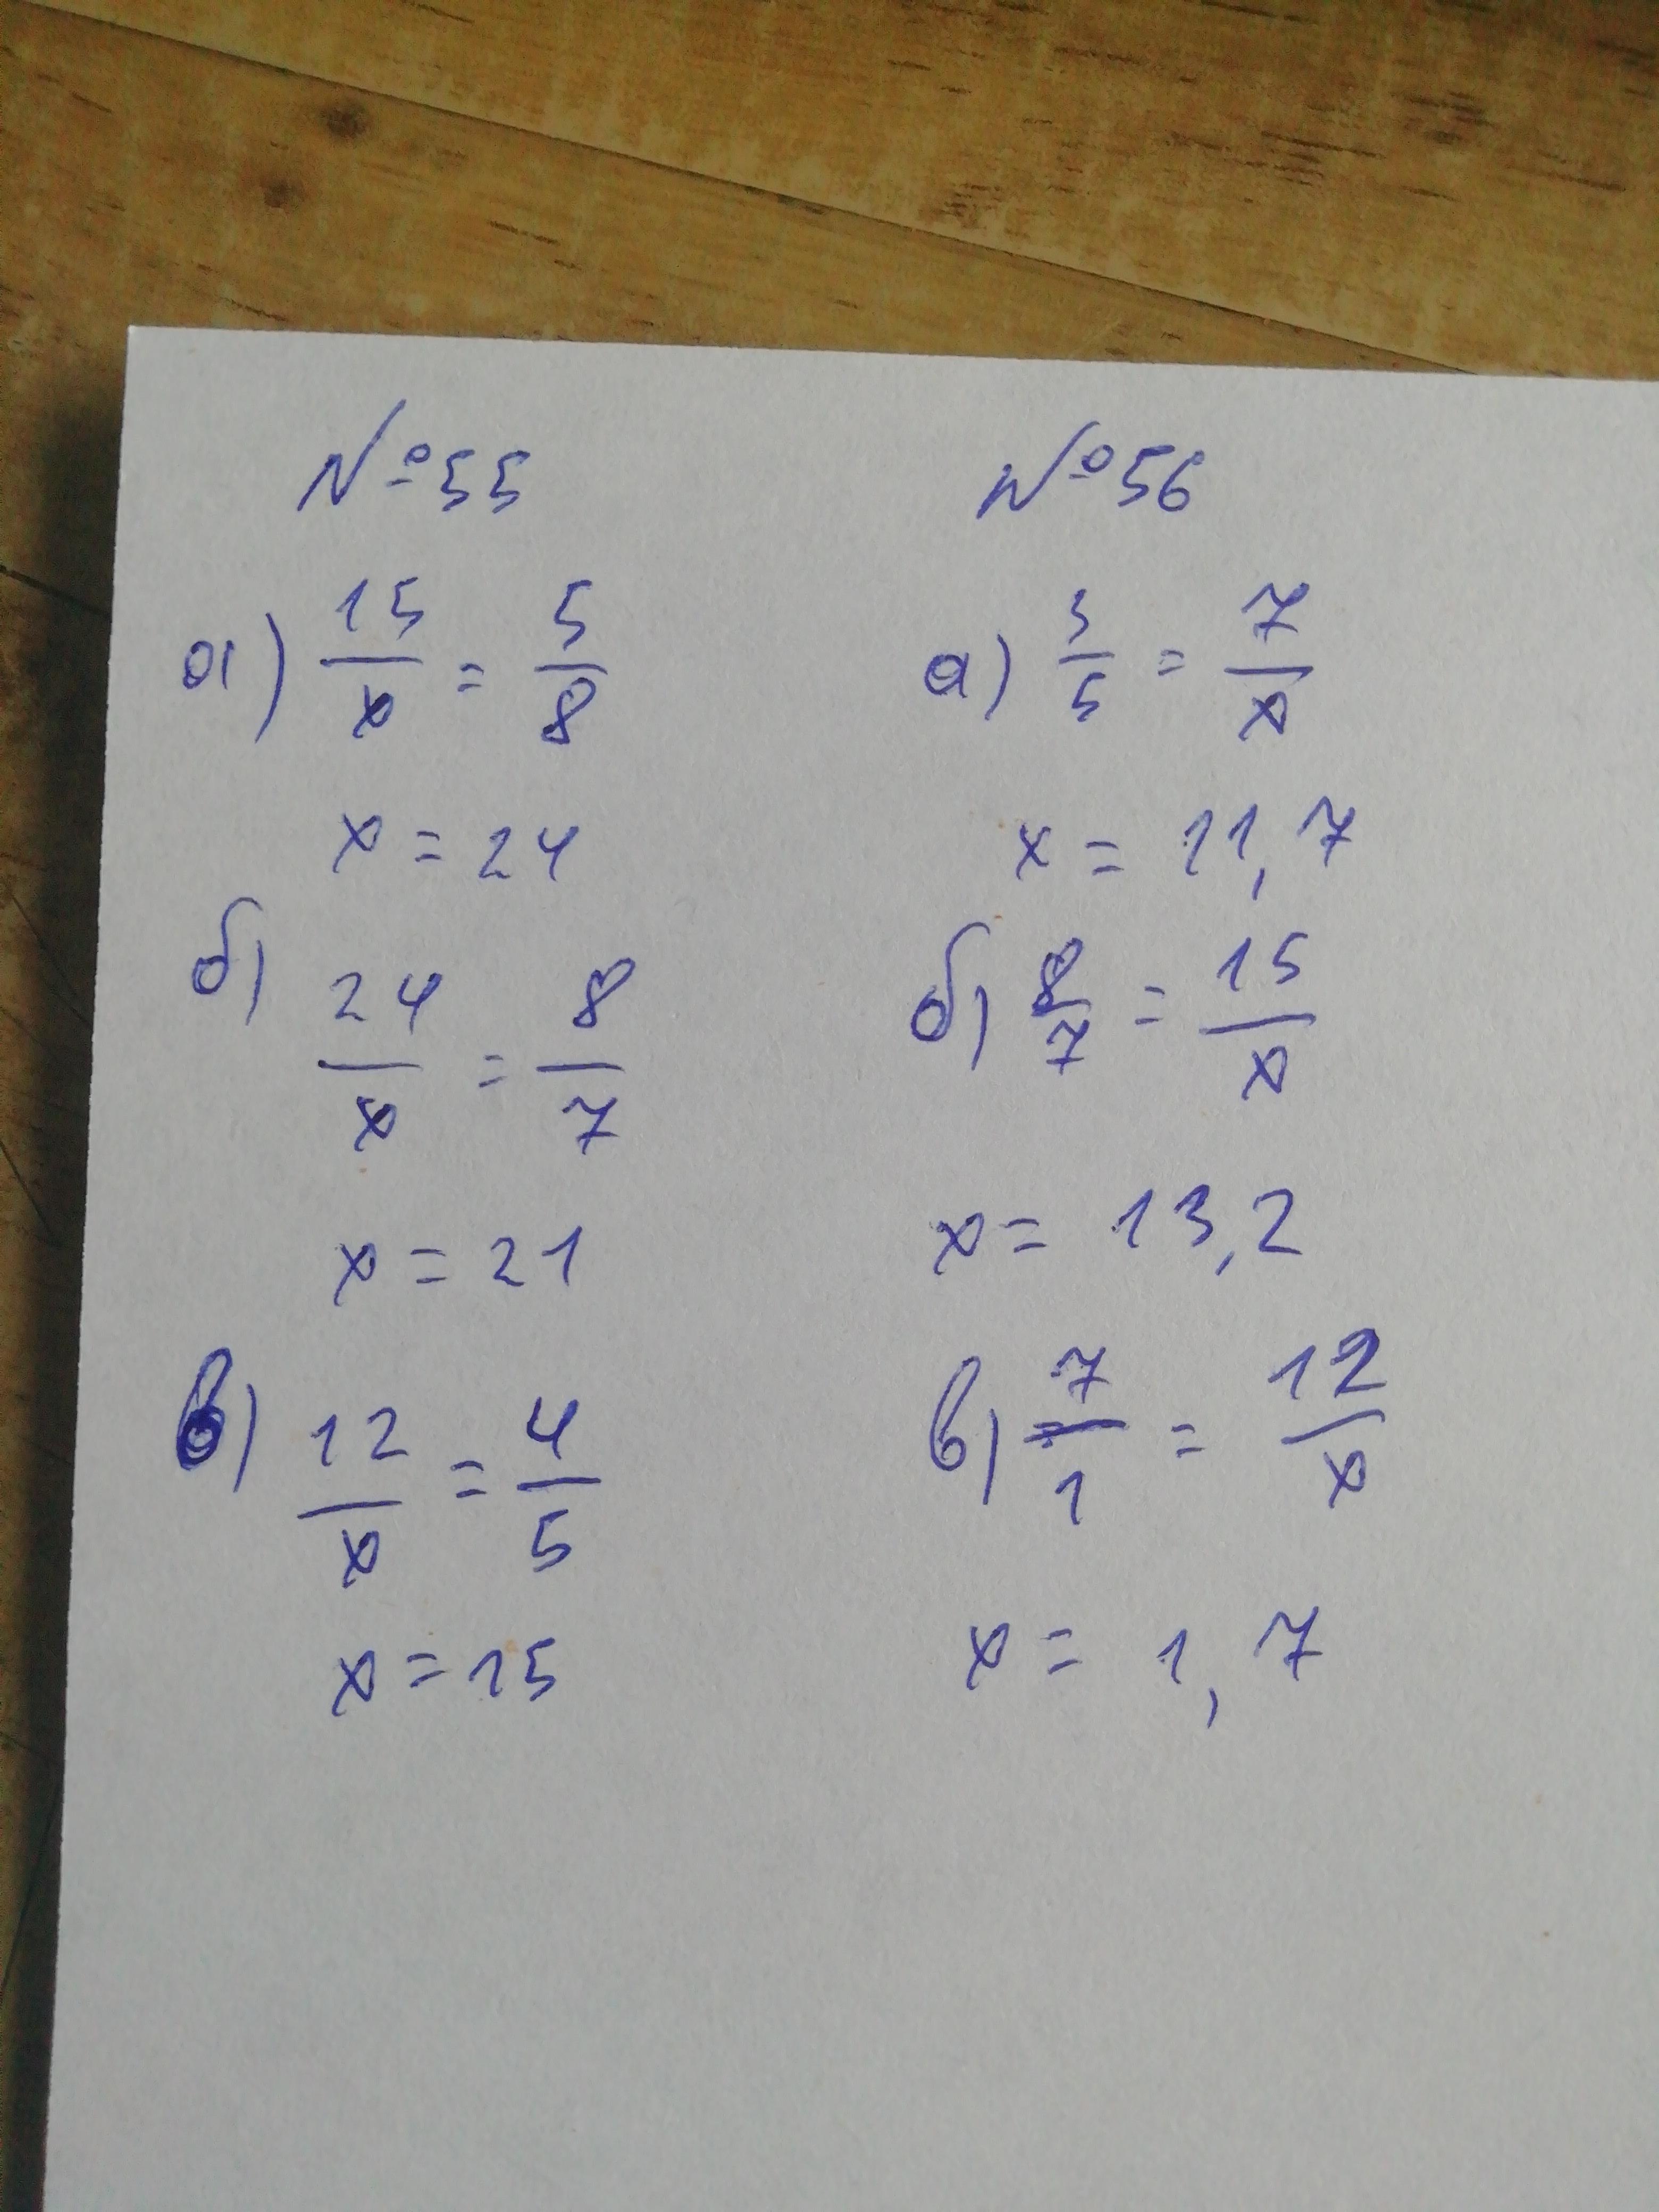 №55
а) 15/x = 5/8
x = 24
б) 24/x = 8/7
x = 21
в) 12/x = 4/5
x = 15
№56
а) 3/5 = 7/x
x = 11,7
б) 8/7 = 15/x
x = 13,2
в) 7/1 = 12/x
x = 1,7